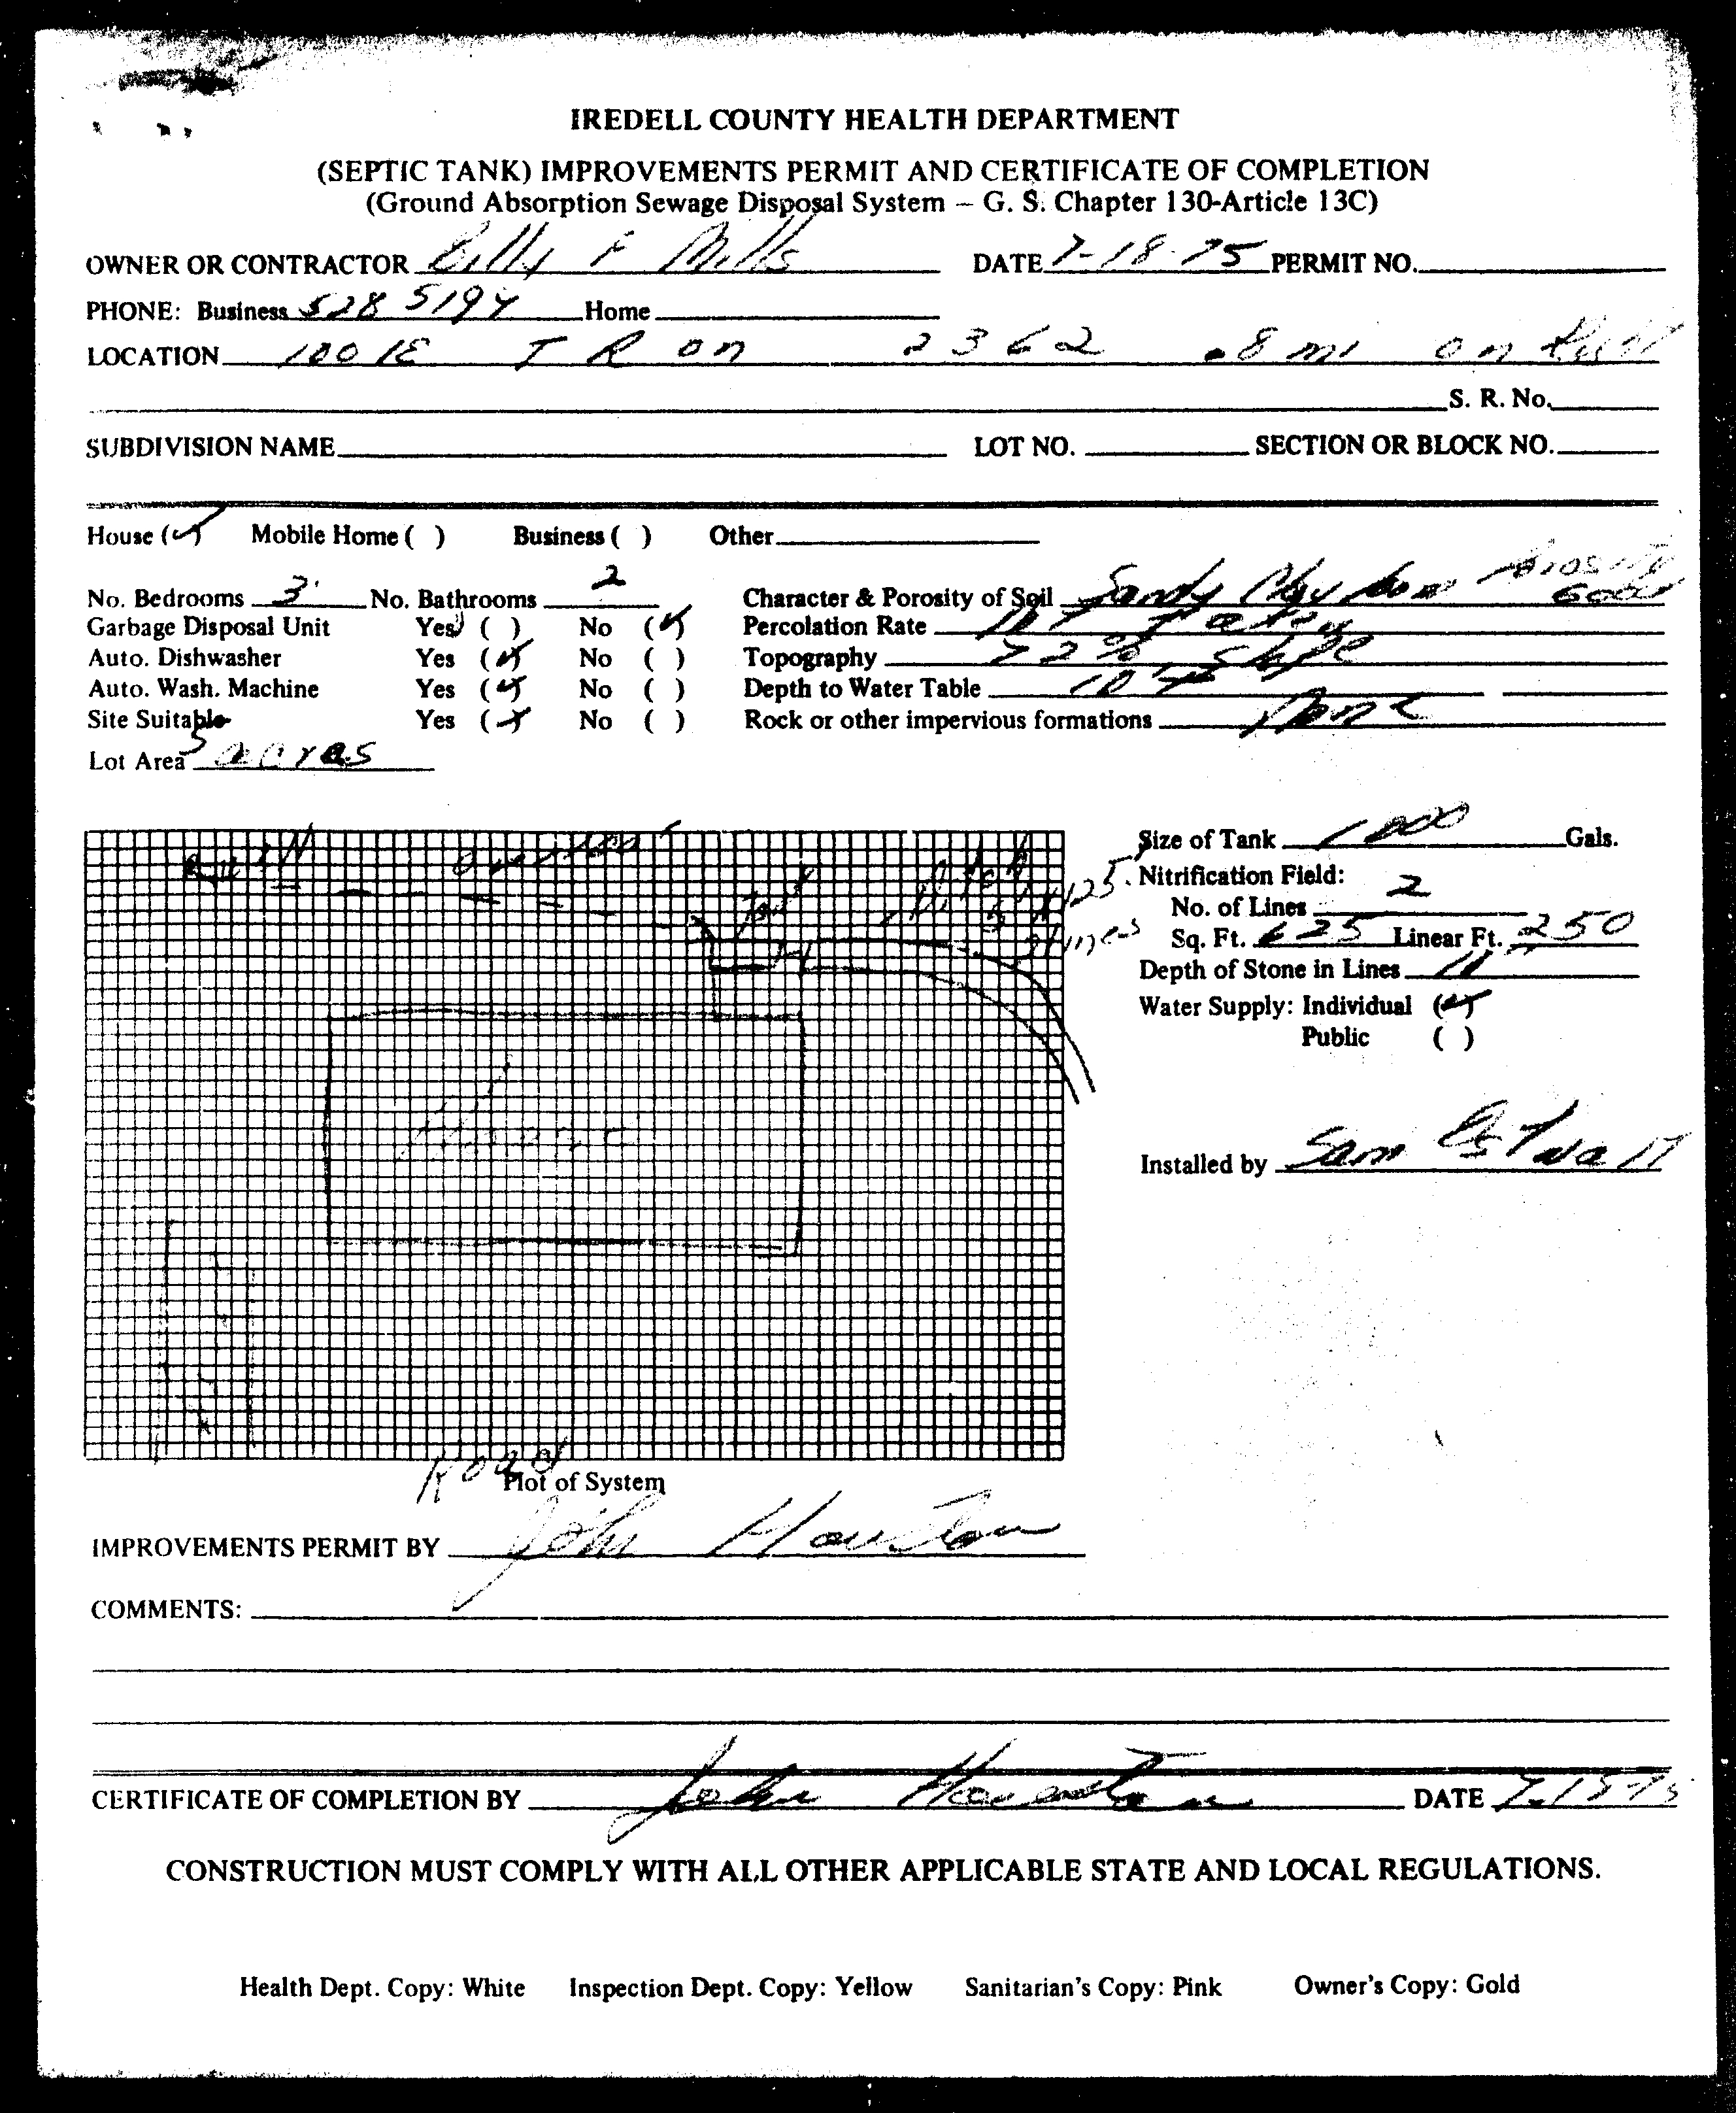 IREDELL COUNTY HEALTH DEPARTMENT
(SEPTIC TANK) IMPROVEMENTS PERMIT AND CERTIFICATE OF COMPLETION
(Ground Absorption Sewage Disposal System – G. S. Chapter 130-Article 13C)
OWNER OR CONTRACTOR Billy F Mills DATE 7-18-75 PERMIT NO.
PHONE: Business 528 5194 Home
LOCATION 100 1E T R on 2362 .8 mi on
S. R. No.
SUBDIVISION NAME LOT NO. SECTION OR BLOCK NO.
House (✓) Mobile Home ( ) Business ( ) Other
No. Bedrooms 3 No. Bathrooms 2 Character & Porosity of Soil Sandy Clay Porosity Good
Garbage Disposal Unit Yes ( ) No (✓) Percolation Rate
Auto. Dishwasher Yes (✓) No ( ) Topography > 2% slope
Auto. Wash. Machine Yes (✓) No ( ) Depth to Water Table 10'
Site Suitable Yes (✓) No ( ) Rock or other impervious formations None
Lot Area 5 acres
Size of Tank 1000 Gals.
Nitrification Field:
No. of Lines 2
Sq. Ft. 625 Linear Ft. 250
Depth of Stone in Lines
Water Supply: Individual (✓)
Public ( )
Installed by Sam
100'
Tank
Ditch
125
2 lines
House
Road
Plot of System
IMPROVEMENTS PERMIT BY John Houston
COMMENTS:
CERTIFICATE OF COMPLETION BY John Houston DATE 7-18-75
CONSTRUCTION MUST COMPLY WITH ALL OTHER APPLICABLE STATE AND LOCAL REGULATIONS.
Health Dept. Copy: White Inspection Dept. Copy: Yellow Sanitarian's Copy: Pink Owner's Copy: Gold